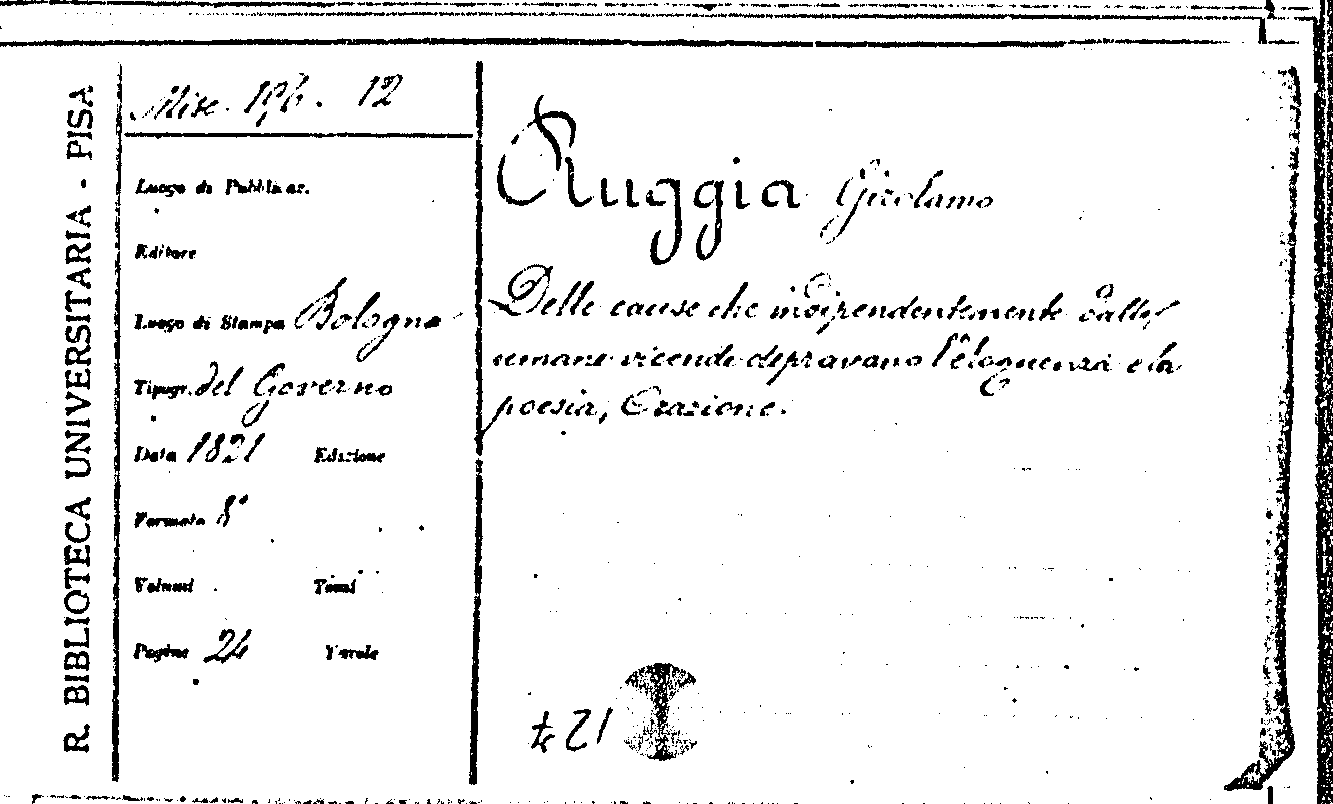 R. BIBLIOTECA UNIVERSITARIA - PISA
Misc. 196. 12
Luogo di Pubblicaz.
Editore
Luogo di Stampa Bologna
Tipogr. del Governo
Data 1821 Edizione
Formato 8°
Volumi Tomi
Pagine 24 Tavole
Ruggia Girolamo
Delle cause che indipendentemente dalle
umane vicende depravano l'eloquenza e la
poesia, Orazione.